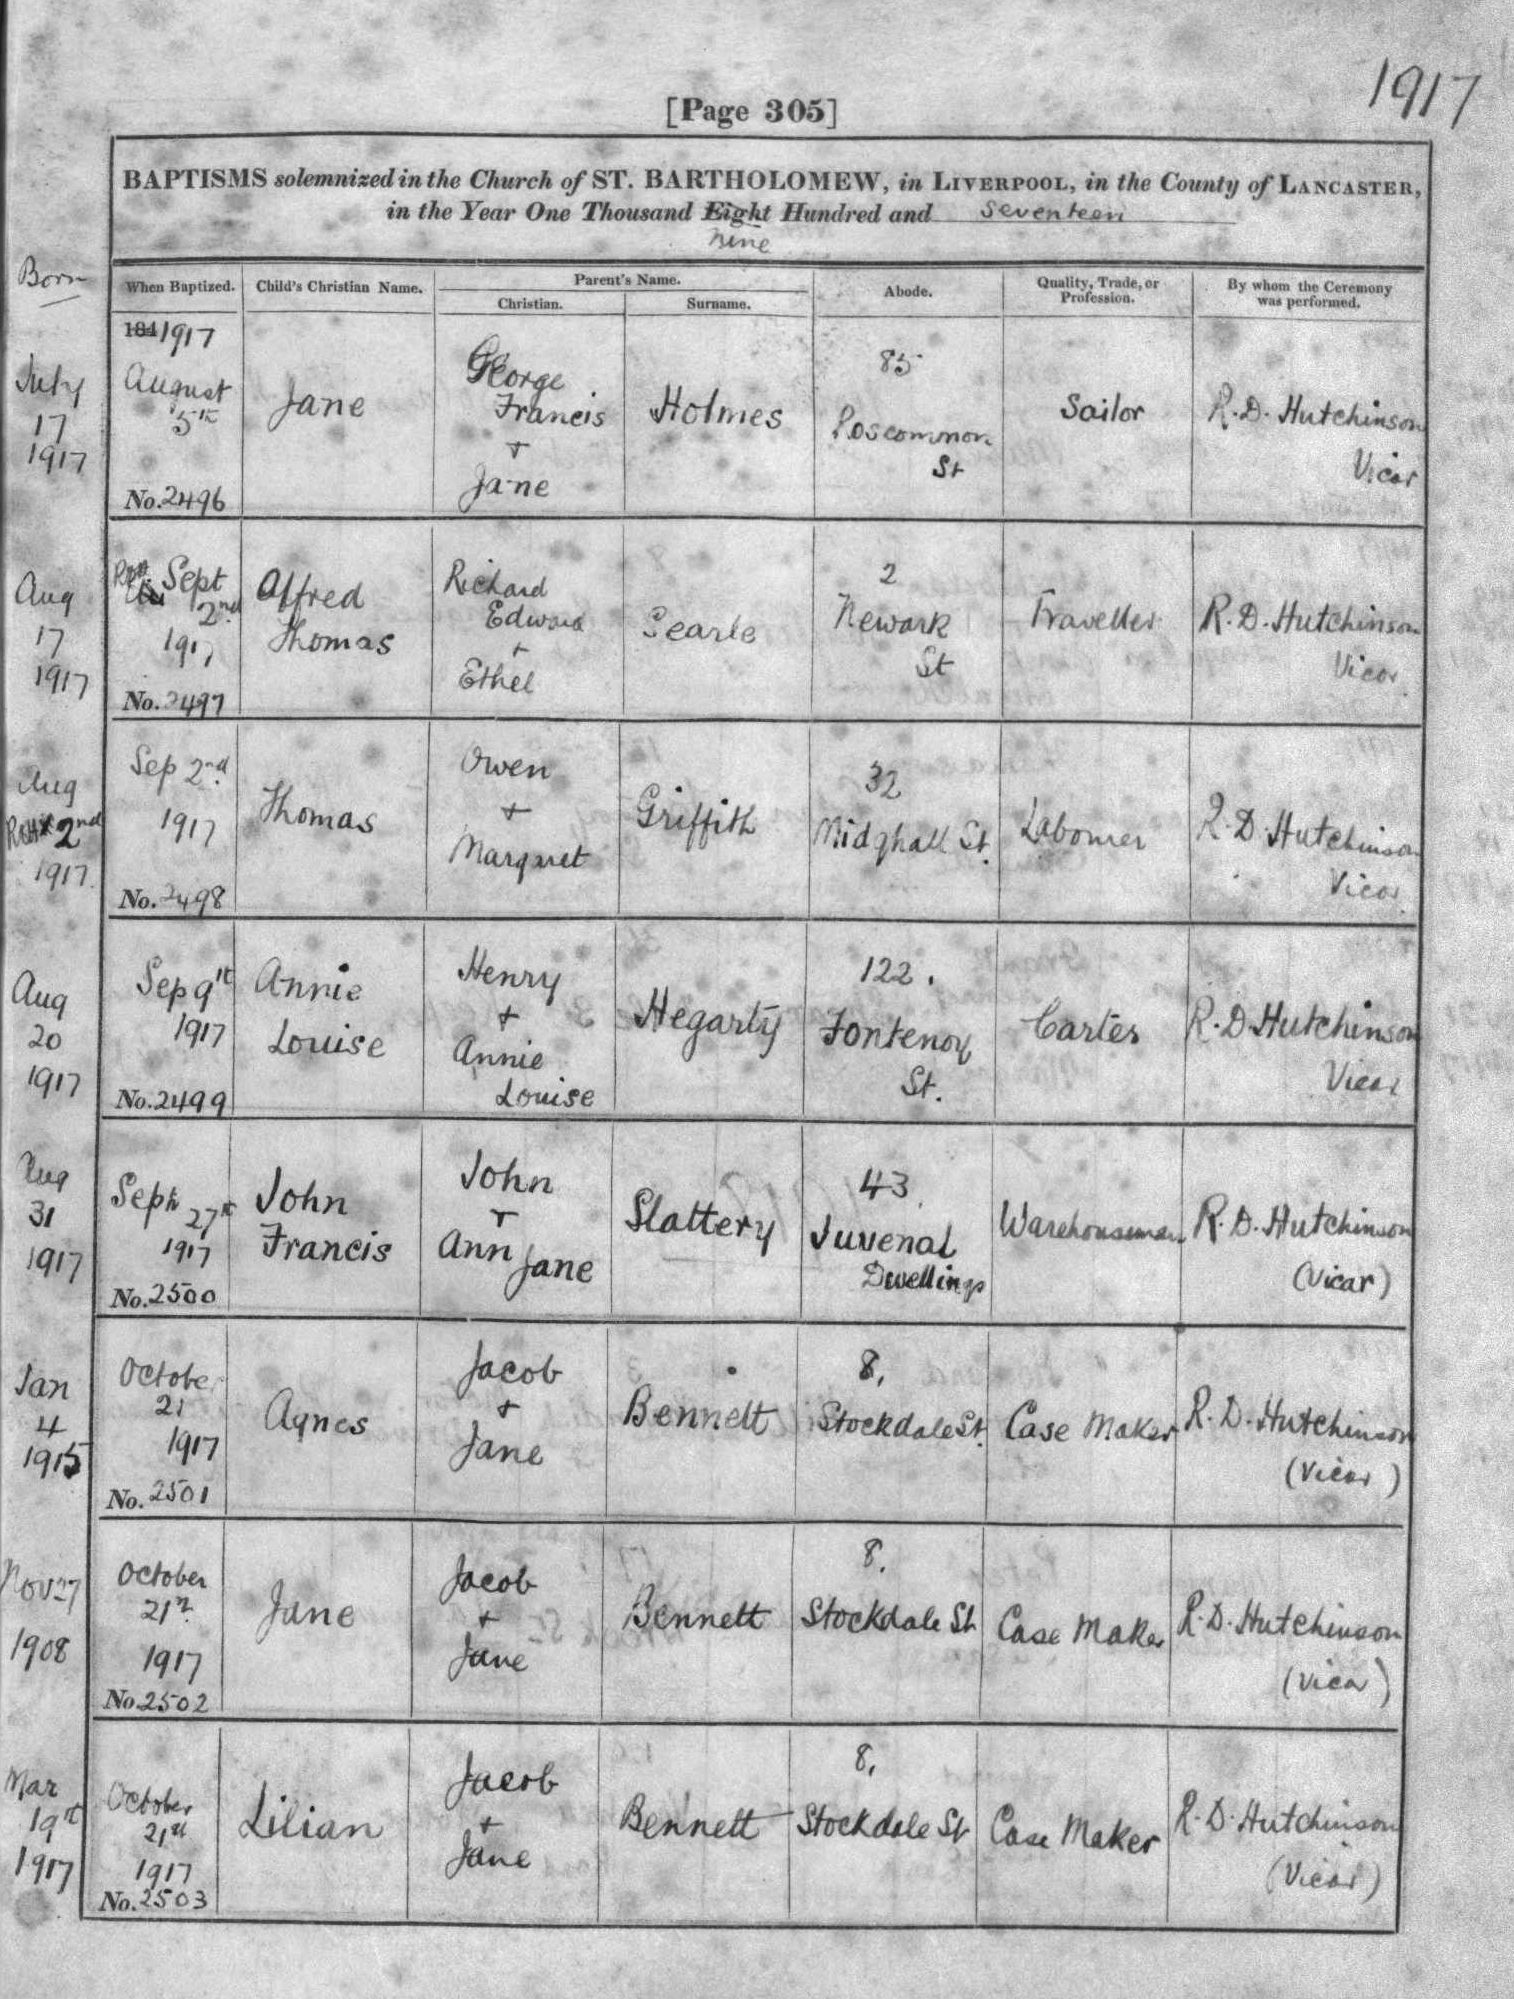 1917
[Page 305]
BAPTISMS solemnized in the Church of ST. BARTHOLOMEW, in LIVERPOOL, in the County of LANCASTER,
in the Year One Thousand Eight Hundred and seventeen
nine
Born
When Baptized.
Child's Christian Name.
Parent's Name.
Christian.
Surname.
Abode.
Quality, Trade, or
Profession.
By whom the Ceremony
was performed.
July
17
1917
184 1917
August
5th
No. 2496
Jane
George
Francis
+
Jane
Holmes
85
Roscommon
St
Sailor
R. D. Hutchinson
Vicar
Aug
17
1917
Sept
2nd
1917
No. 2497
Alfred
Thomas
Richard
Edward
+
Ethel
Searle
2
Newark
St
Traveller
R. D. Hutchinson
Vicar
Aug
RDH 2nd
1917
Sep 2nd
1917
No. 2498
Thomas
Owen
+
Margaret
Griffith
32
Midghall St.
Labourer
R. D. Hutchinson
Vicar
Aug
20
1917
Sep 9th
1917
No. 2499
Annie
Louise
Henry
+
Annie
Louise
Hegarty
122.
Fontenoy
St.
Carter
R. D. Hutchinson
Vicar
Aug
31
1917
Sept 27th
1917
No. 2500
John
Francis
John
+
Ann Jane
Slattery
43
Juvenal
Dwellings
Warehouseman
R. D. Hutchinson
(Vicar)
Jan
4
1915
October
21
1917
No. 2501
Agnes
Jacob
+
Jane
Bennett
8,
Stockdale St.
Case Maker
R. D. Hutchinson
(Vicar)
Nov 27
1908
October
21st
1917
No. 2502
Jane
Jacob
+
Jane
Bennett
8.
Stockdale St
Case Maker
R. D. Hutchinson
(Vicar)
Mar
19th
1917
October
21st
1917
No. 2503
Lilian
Jacob
+
Jane
Bennett
8,
Stockdale St
Case Maker
R. D. Hutchinson
(Vicar)